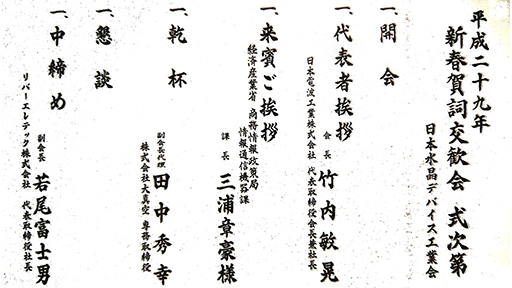 平成二十九年
新春賀詞交歓会 式次第
日本水晶デバイス工業会
一、開会
一、代表者挨拶
会長 竹内敏晃
日本電波工業株式会社 代表取締役会長兼社長
一、来賓ご挨拶
経済産業省 商務情報政策局
情報通信機器課
課長 三浦章豪様
一、乾杯
副会長代理 田中秀幸
株式会社大真空 専務取締役
一、懇談
一、中締め
副会長 若尾富士男
リバーエレテック株式会社 代表取締役社長